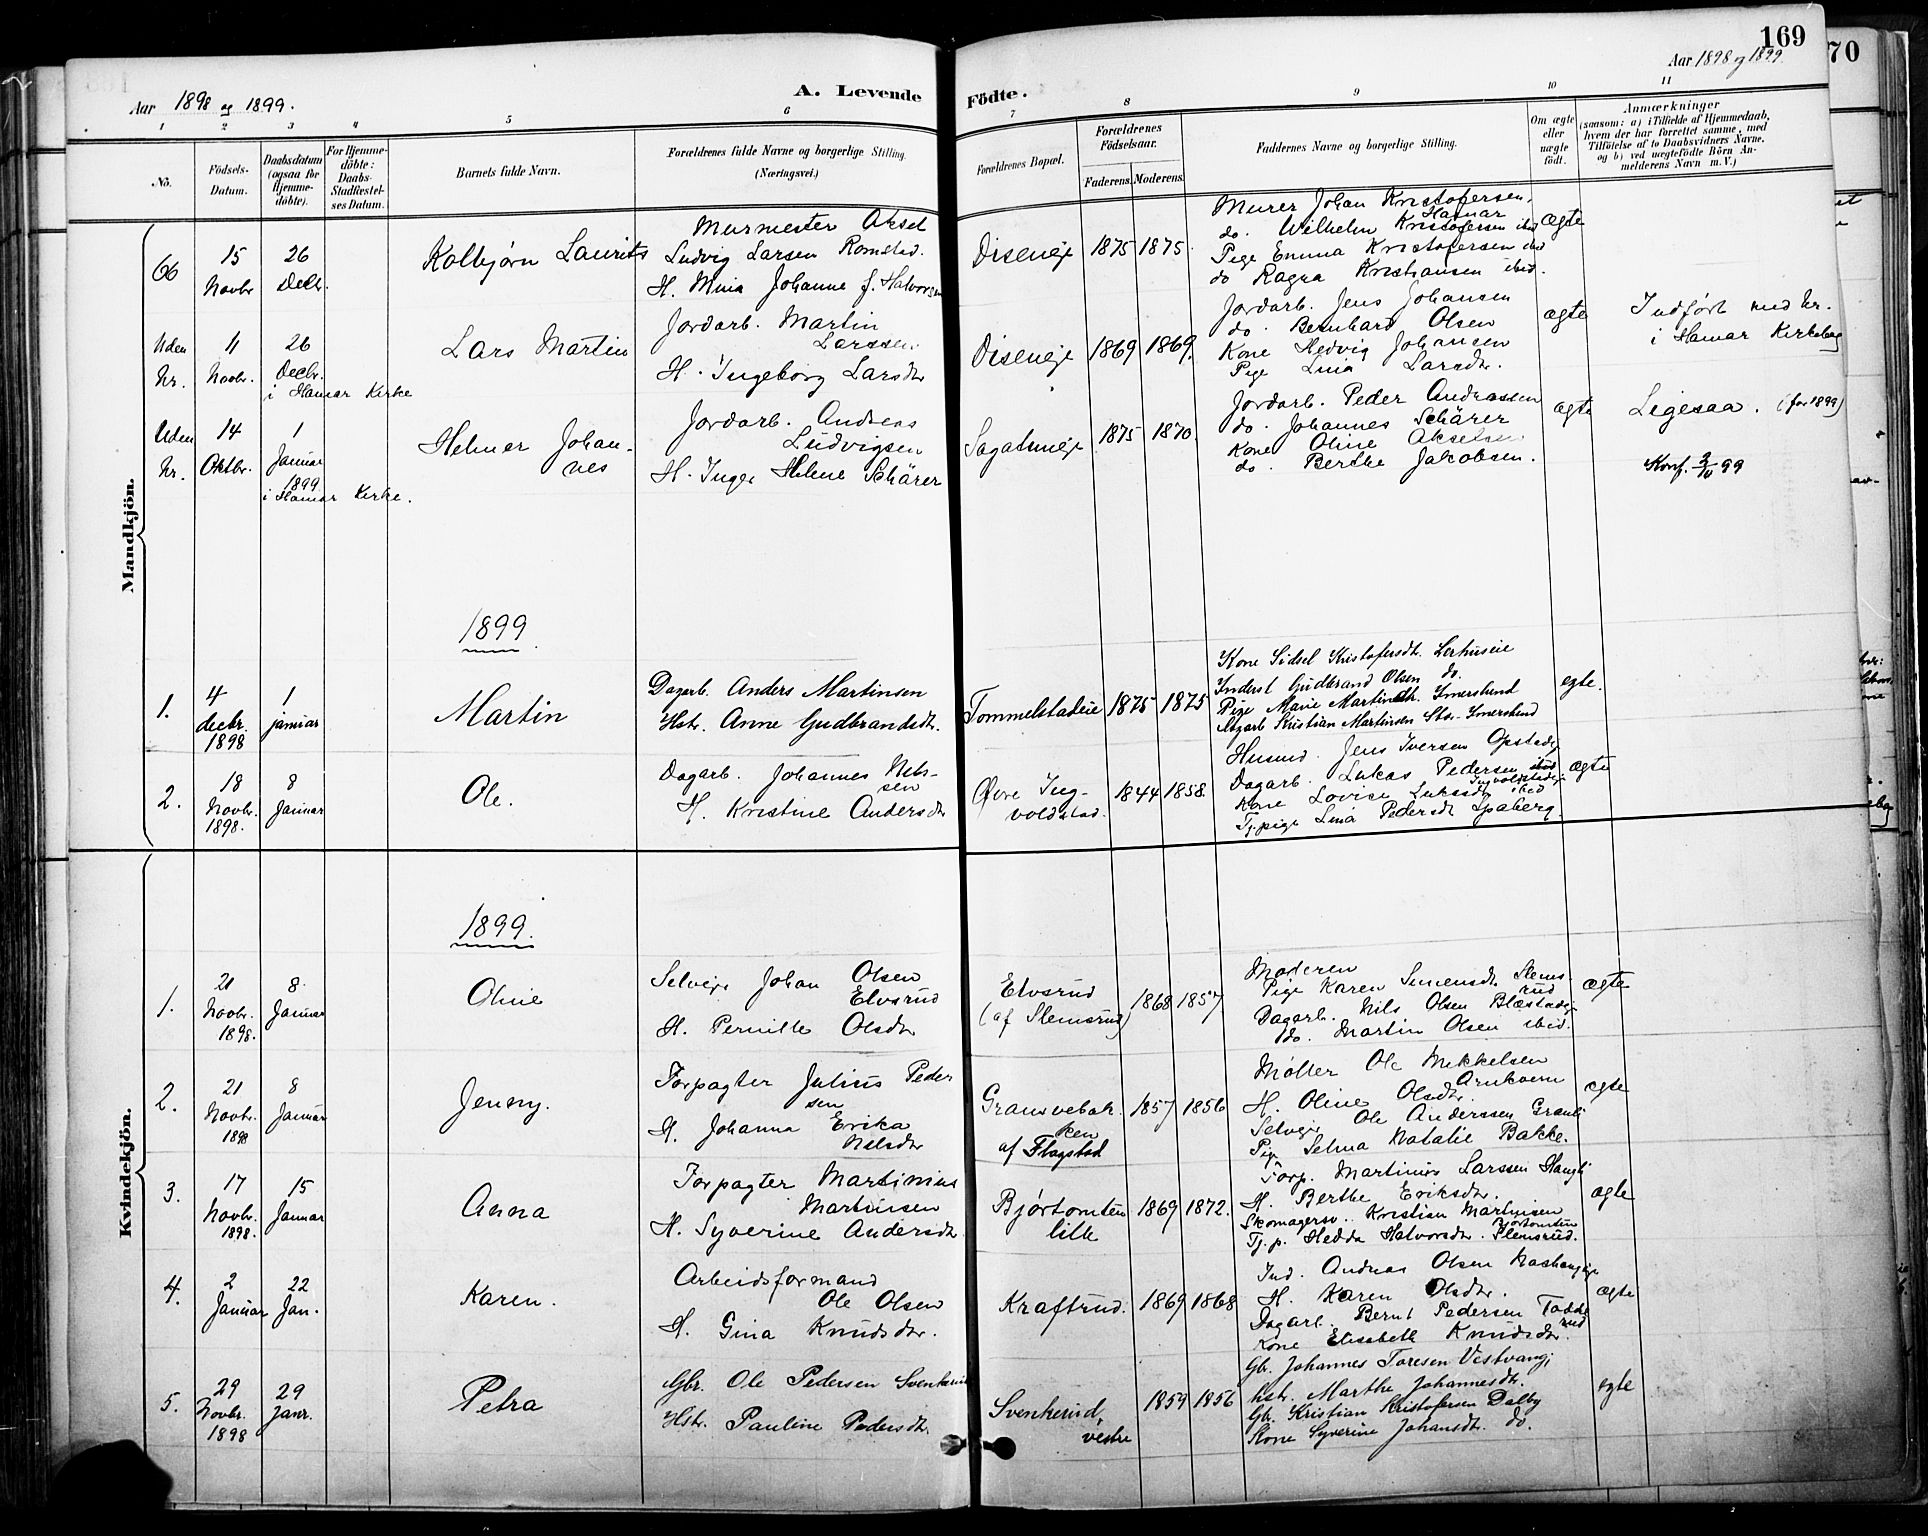 169
70
Aar 1898 og 1899.
A. Levende
Födte.
Aar 1898 og 1899
1 2 3 4 5 6 7 8 9 10 11
No.
Födsels-Datum.
Daabsdatum (ogsaa for Hjemme-döbte).
For Hjemme-döbte: Daabs-Stadfæstel-ses Datum.
Barnets fulde Navn.
Forældrenes fulde Navne og borgerlige Stilling. (Næringsvei.)
Forældrenes Bopæl.
Forældrenes Födselsaar.
Faderens. Moderens.
Faddernes Navne og borgerlige Stilling.
Om ægte eller uægte födt.
Anmærkninger
(saasom: a) i Tilfælde af Hjemmedaab,
hvem der har forrettet samme, med
Tilföielse af to Daabsvidners Navne,
og b) ved uægtefödte Börn An-
melderens Navn m. V.)
Mandkjön.
66
15 Novbr
26 Decbr.
Kolbjørn Laurits
Murmester Aksel
Ludvig Larsen Romstad.
H. Mina Johanne f. Halvorsen
Diseneje
1875 1875.
Murer Johan Kristofersen,
Hamar
do. Wilhelm Kristofersen ibd
Pige Emma Kristofersen ibd
do Ragna Kristiansen ibid.
ægte
Uden Nr.
11 Novbr.
26 Decbr.
i Hamar Kirke
Lars Martin
Jordarb. Martin
Larssen.
H. Ingeborg Larsdtr
Diseneje
1869 1869.
Jordarb. Jens Johansen
do. Bernhard Olsen
Kone Hedvig Johansen
Pige Lina Larsdtr.
ægte
Indført med Nr.
i Hamar Kirkebog
Uden Nr.
14 Oktbr.
1 Januar 1899
i Hamar Kirke.
Helmer Johan-
nes
Jordarb. Andreas
Ludvigsen
H. Inger Helene Schärer
Sagatuneje
1875 1870.
Jordarb. Peder Andreassen
do. Johannes Schärer
Kone Oline Akselsen
do. Berthe Jakobsen.
ægte
Ligesaa. (for 1899)
Konf. 99
1899.
1.
4 decbr. 1898
1 januar
Martin
Dagarb. Anders Martinsen
Hstr. Anne Gudbrandsdtr.
Tommelstadeie
1875 1875
Kone Sidsel Kristofersdtr. Lerhuseie
Inderst Gudbrand Olsen do.
Pige Marie Martinsdtr. Imerslund
Dagarb Kristian Martinsen Stor-Imerslund
egte.
2.
18 Novbr. 1898.
8 Januar
Ole.
Dagarb. Johannes Nils-
sen
H. Kristine Andersdtr
Øvre Ing-
voldstad.
1844 1858.
Husmd. Jens Iversen Opstadej
Dagarb. Lukas Pedersen
Ingvoldstadeje
Kone Lovise Luksdtr ibid
Tj.pige Lina Pedersdt Spaberg.
ægte
Kvindekjön.
1899.
1.
21 Novbr. 1898.
8. Januar
Oline
Selvejr Johan Olsen
Elvsrud
H. Pernille Olsdtr
Elvsrud
(af Slemsrud)
1868 1857.
Moderen
Pige Karen Simensdt. Slems-
rud
Dagarb. Nils Olsen Blæstadej
do. Martin Olsen ibid.
ægte
2.
21 Novbr. 1898
8 Januar
Jenny.
Forpagter Julius Peder
sen
H. Johanna Erika
Nilsdtr
Gransvebak-
ken
af Flagstad
1857 1856
Møller Ole Mikkelsen
Arnkvern
H. Oline Olsdtr.
Selvejr Ole Anderssen Granli
Pige Selma Natalie Bakke.
ægte
3.
17 Novbr. 1898.
15 Januar
Anna
Forpagter Martinius
Martinsen
H. Syverine Andersdtr.
Bjørtomten
lille
1869 1872.
Forp. Martinus Larssen Haugli
H. Berthe Eriksdtr.
Skomagersv. Kristian Martinsen
Bjørtomten
Tj.p. Hedda Halvorsdtr. Slemsrud.
ægte
4.
2 Januar
22 Jan.
Karen.
Arbeidsformand
Ole Olsen
H. Gina Knudsdtr.
Kraftrud.
1869 1868
Ind. Andreas Olsen
H. Karen Olsdtr.
Dagarb. Bernt Pedersen Todde
rud
Kone Elisabeth Knudsdtr.
ægte
5.
29 Novbr. 1898
29 Janr.
Petra
Gbr. Ole Pedersen Svenkerud
Hstr. Pauline Pedersdtr.
Svenkerud,
vestre
1859 1856
Gb. Johannes Toresen Vestvang;
hstr. Marthe Johannesdtr.
Gb. Kristian Kristofersen Dalby
Kone Syverine Johansdtr. do.
egte